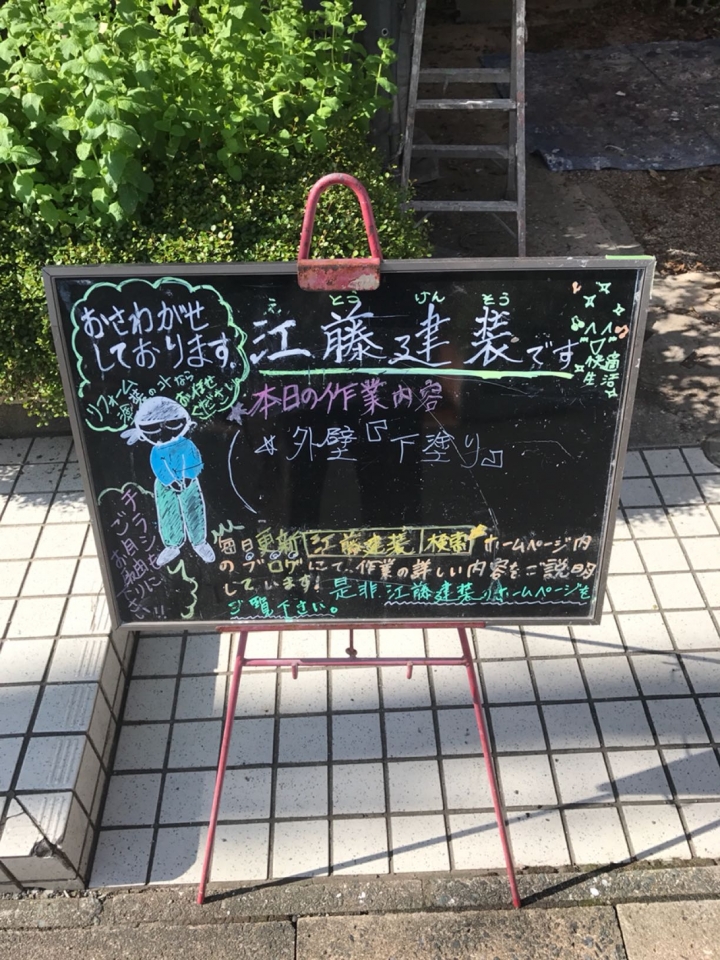 おさわがせ
しております。
リフォーム
お任せ
ください
え とう けん そう
江藤建装です
快適
生活
本日の作業内容
外壁『下塗り』
チラシも
ご自由に
お取り下さい!!
毎日更新 江藤建装 検索 ホームページ内
のブログにて、作業の詳しい内容をご説明
しています!是非、江藤建装のホームページを
ご覧下さい。